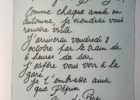 Comme chaque année en
automne, je viendrai vous
rendre visite.
J'arriverai vendredi 8
octobre par le train de
6 heures du soir.
J'espère vous voir à la
gare.
Je t'embrasse ainsi
que Pépin